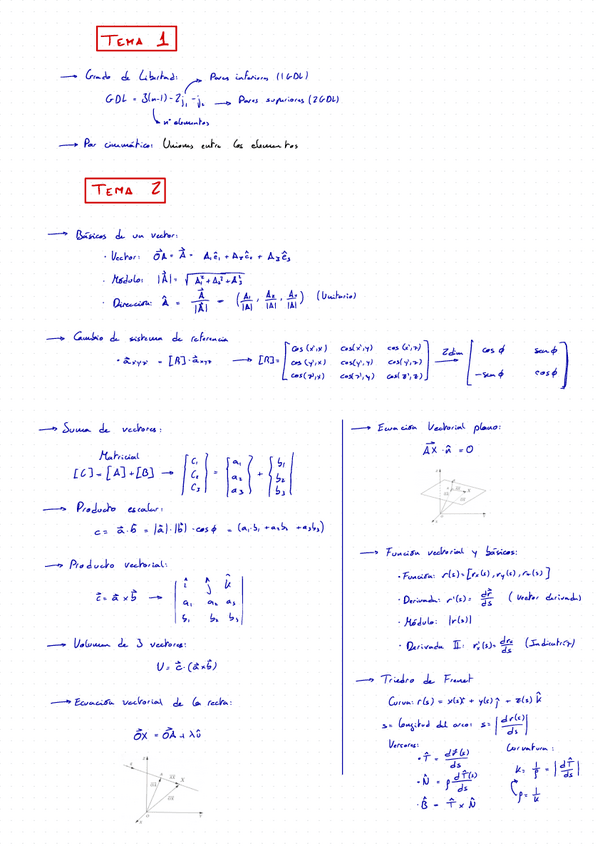 TEMA 1
→ Grado de Libertad: → Pares inferiores (1GDL)
GDL = 3(n-1) - 2j₁ - j₂ → Pares superiores (2GDL)
↳ nº elementos
→ Par cinemático: Uniones entre los elementos
TEMA 2
→ Básicos de un vector:
· Vector: OA⃗ = A⃗ = A₁ê₁ + A₂ê₂ + A₃ê₃
· Módulo: |A⃗| = √(A₁² + A₂² + A₃²)
· Dirección: Â = A⃗/|A⃗| = (A₁/|A|, A₂/|A|, A₃/|A|) (Unitario)
→ Cambio de sistema de referencia
· a⃗x'y'z' = [R] · a⃗xyz → [R] = [cos(x',x) cos(x',y) cos(x',z) 2dim → [cos ϕ sen ϕ
cos(y',x) cos(y',y) cos(y',z)
cos(z',x) cos(z',y) cos(z',z)] -sen ϕ cos ϕ]
→ Suma de vectores:
Matricial
[C] = [A] + [B] → {c₁ c₂ c₃} = {a₁ a₂ a₃} + {b₁ b₂ b₃}
→ Producto escalar:
c = a⃗ · b⃗ = |a⃗| · |b⃗| · cos ϕ = (a₁·b₁ + a₂b₂ + a₃b₃)
→ Producto vectorial:
c⃗ = a⃗ x b⃗ → | î ĵ k̂
a₁ a₂ a₃
b₁ b₂ b₃ |
→ Volumen de 3 vectores:
V = c⃗ · (a⃗ x b⃗)
→ Ecuación vectorial de la recta:
OX⃗ = OA⃗ + λû
→ Ecuación Vectorial plano:
AX⃗ · n̂ = 0
→ Función vectorial y básicos:
· Función: r(s) = [rx(s), ry(s), rz(s)]
· Derivada: r'(s) = dr⃗/ds (Vector derivada)
· Módulo: |r(s)|
· Derivada II: r'x(s) = drx/ds (Indicatriz)
→ Triedro de Frenet
Curva: r(s) = x(s)î + y(s)ĵ + z(s)k̂
s = longitud del arco: s = |dr(s)/ds|
Versores: Curvatura:
· T̂ = dr⃗(s)/ds
k = 1/ρ = |dT̂/ds|
· N̂ = ρ dT̂(s)/ds
ρ = 1/k
· B̂ = T̂ x N̂